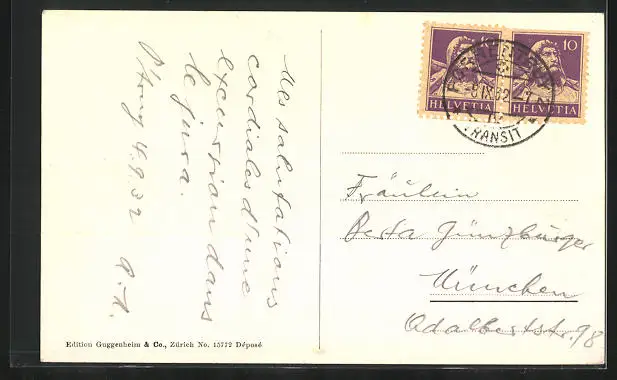 Mes salutations
cordiales d'une
excursion dans
le jura.
4.9.32
10
10
HELVETIA
HELVETIA
TRANSIT
Fräulein
Berta Günzburger
München
Adalbertstr. 98
Edition Guggenheim & Co., Zürich No. 15772 Déposé